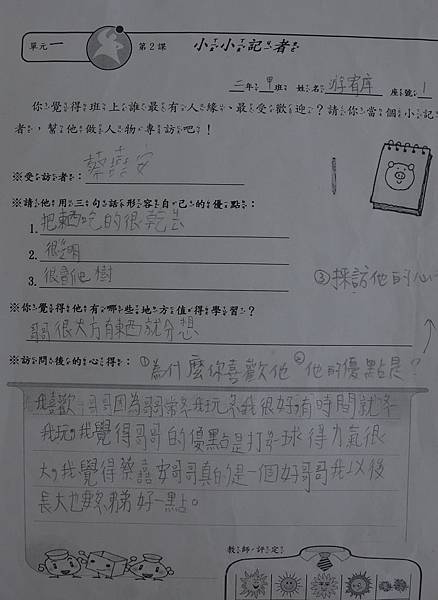 單元一 第2課 小小記者
二年甲班 姓名 游宥庠 座號 1
你覺得班上誰最有人緣、最受歡迎？請你當個小記
者，幫他做人物專訪吧！
※受訪者：蔡熹安
※請他用三句話形容自己的優點：
1. 把東西吃的很乾
2. 很
3. 很會爬樹
③採訪他的心
※你覺得他有哪些地方值得學習？
哥哥很大方有東西就分想
※訪問後的心得：①為什麼你喜歡他②他的優點是？
我喜歡哥哥因為哥哥常 我玩 我很好有時間就
我玩，我覺得哥哥的優點是打 球得力氣很
大，我覺得蔡熹安哥哥真的是一個好哥哥我以後
長大也 好一點。
教師評定